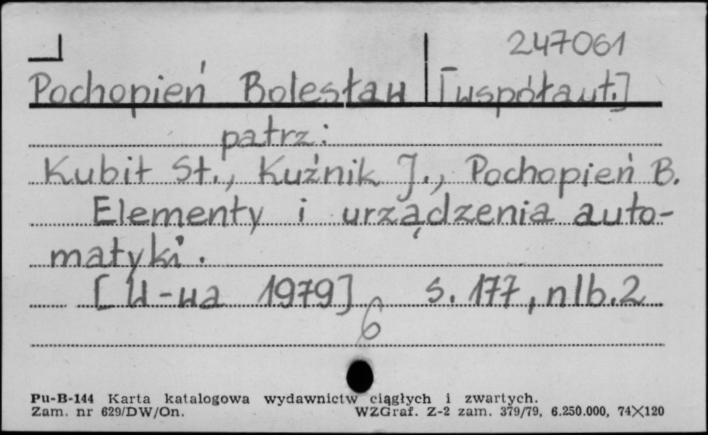 247061
Pochopień Bolesław [współaut.]
patrz:
Kubit St., Kuźnik J., Pochopień B.
Elementy i urządzenia auto-
matyki.
[W-wa 1979] s. 177, nlb. 2
6
Pu-B-144 Karta katalogowa wydawnictw ciągłych i zwartych.
Zam. nr 629/DW/On. WZGraf. Z-2 zam. 379/79, 6.250.000, 74×120